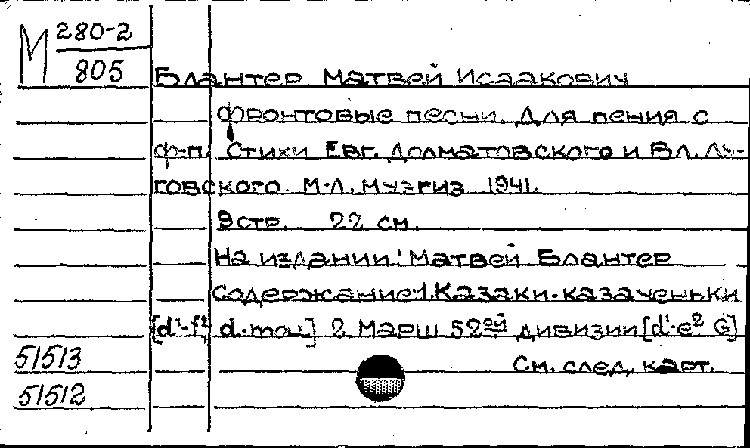 М 280-2
805
Блантер Матвей Исаакович
Фронтовые песни. Для пения с
ф-п. Стихи Евг. Долматовского и Вл. Лу-
говского. М-Л, Музгиз 1941.
9 стр. 22 см.
На издании: Матвей Блантер
Содержание: 1. Казаки-казаченьки
[d¹-f² d-moll] 2 Марш 52ой дивизии [d¹-e² G]
51513
См. след. карт.
51512